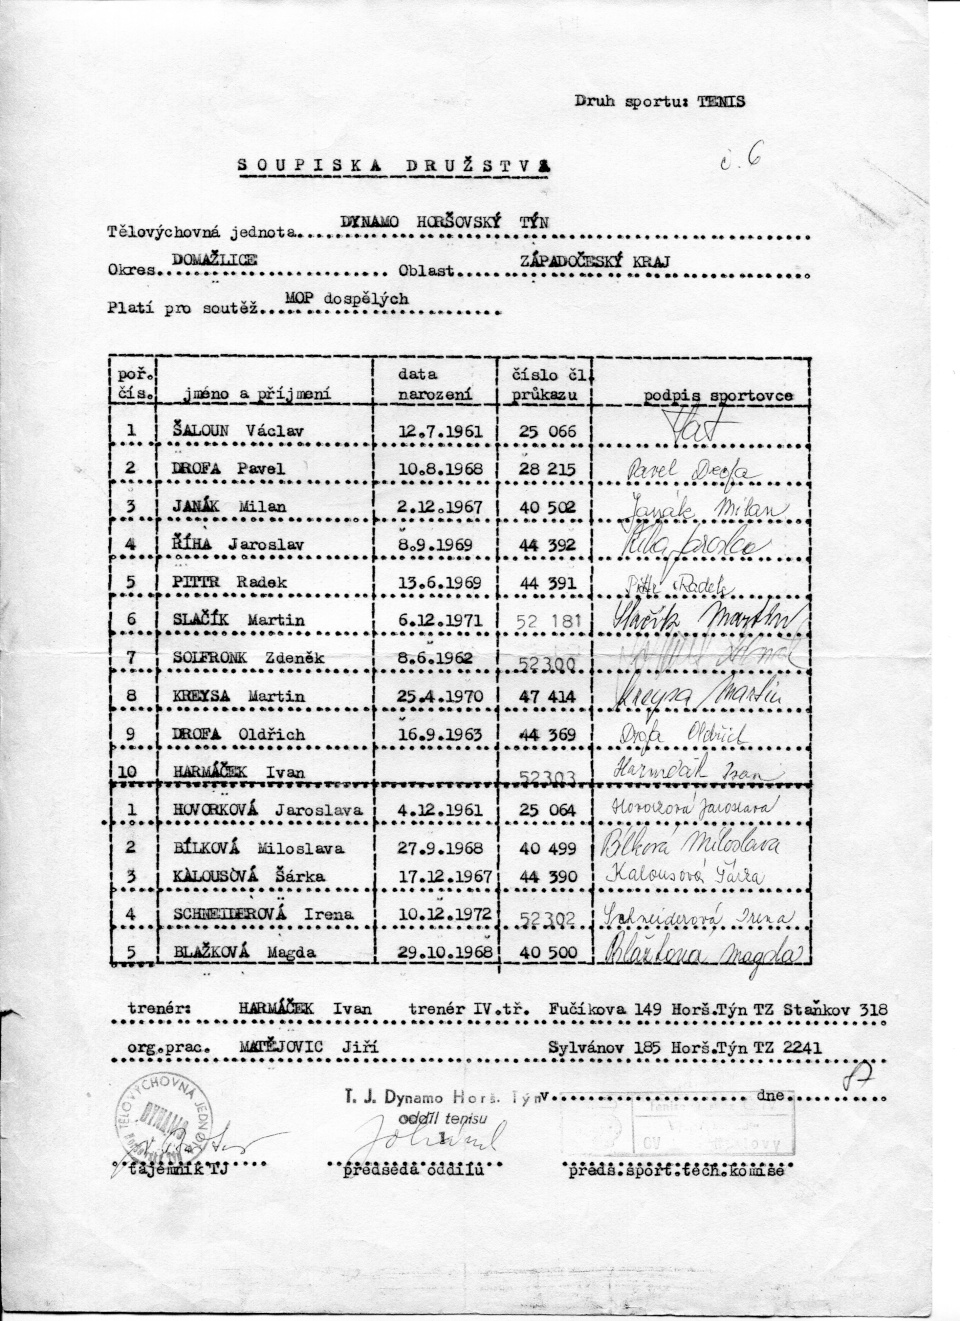 Druh sportu: TENIS
č. 6
SOUPISKA DRUŽSTVA
Tělovýchovná jednota DYNAMO HORŠOVSKÝ TÝN
Okres DOMAŽLICE Oblast ZÁPADOČESKÝ KRAJ
Platí pro soutěž MOP dospělých
poř. čís. jméno a příjmení data narození číslo čl. průkazu podpis sportovce
1 ŠALOUN Václav 12.7.1961 25 066
2 DROFA Pavel 10.8.1968 28 215 Pavel Drofa
3 JANÁK Milan 2.12.1967 40 502 Janák Milan
4 ŘÍHA Jaroslav 8.9.1969 44 392 Říha Jaroslav
5 PITTR Radek 13.6.1969 44 391 Pittr Radek
6 SLAČÍK Martin 6.12.1971 52 181 Slačík Martin
7 SOLFRONK Zdeněk 8.6.1962 52300
8 KREYSA Martin 25.4.1970 47 414 Kreysa Martin
9 DROFA Oldřich 16.9.1963 44 369 Drofa Oldřich
10 HARMÁČEK Ivan 52303 Harmáček Ivan
1 HOVORKOVÁ Jaroslava 4.12.1961 25 064 Hovorková Jaroslava
2 BÍLKOVÁ Miloslava 27.9.1968 40 499 Bílková Miloslava
3 KALOUSOVÁ Šárka 17.12.1967 44 390 Kalousová Šárka
4 SCHNEIDEROVÁ Irena 10.12.1972 52302 Schneiderová Irena
5 BLAŽKOVÁ Magda 29.10.1968 40 500 Blažková Magda
trenér: HARMÁČEK Ivan trenér IV.tř. Fučíkova 149 Horš.Týn TZ Staňkov 318
org.prac. MATĚJOVIC Jiří Sylvánov 185 Horš.Týn TZ 2241
T. J. Dynamo Horš. Týn v dne 87
oddíl tenisu
1
TĚLOVÝCHOVNÁ JEDNOTA DYNAMO
tajemník TJ předseda oddílu předs.sport.tech.komise